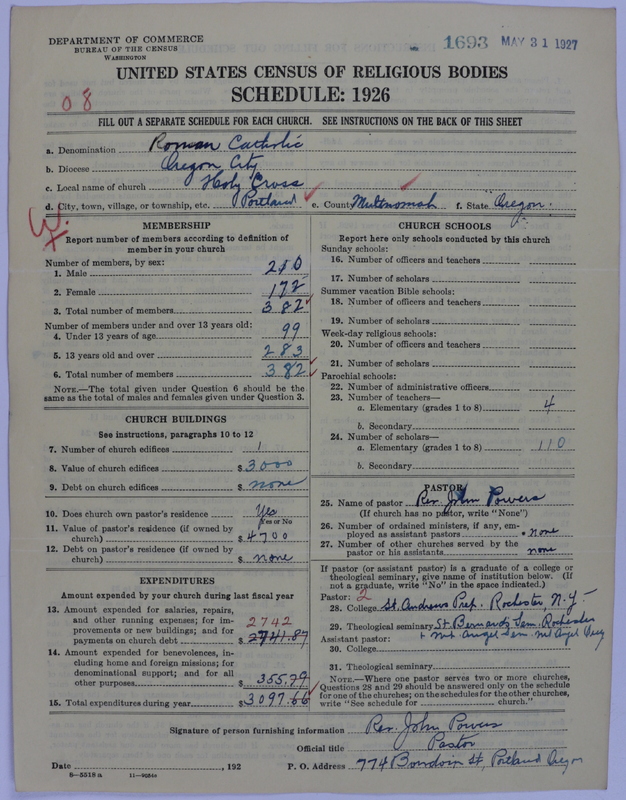 DEPARTMENT OF COMMERCE
BUREAU OF THE CENSUS
WASHINGTON
1693 MAY 31 1927
UNITED STATES CENSUS OF RELIGIOUS BODIES
SCHEDULE: 1926
08
FILL OUT A SEPARATE SCHEDULE FOR EACH CHURCH. SEE INSTRUCTIONS ON THE BACK OF THIS SHEET
a. Denomination Roman Catholic
b. Diocese Oregon City
c. Local name of church Holy Cross
d. City, town, village, or township, etc. Portland e. County Multnomah f. State Oregon.
MEMBERSHIP
Report number of members according to definition of
member in your church
Number of members, by sex:
1. Male 210
2. Female 172
3. Total number of members 382
Number of members under and over 13 years old:
4. Under 13 years of age 99
5. 13 years old and over 283
6. Total number of members 382
NOTE.—The total given under Question 6 should be the
same as the total of males and females given under Question 3.
CHURCH BUILDINGS
See instructions, paragraphs 10 to 12
7. Number of church edifices 1
8. Value of church edifices $ 3000
9. Debt on church edifices $ none
10. Does church own pastor's residence Yes
Yes or No
11. Value of pastor's residence (if owned by
church) $ 4700
12. Debt on pastor's residence (if owned by
church) $ none
EXPENDITURES
Amount expended by your church during last fiscal year
13. Amount expended for salaries, repairs,
and other running expenses; for im-
provements or new buildings; and for
payments on church debt 2742
$ 2741.87
14. Amount expended for benevolences, in-
cluding home and foreign missions; for
denominational support; and for all
other purposes $ 355.79
15. Total expenditures during year $ 3097.66
CHURCH SCHOOLS
Report here only schools conducted by this church
Sunday schools:
16. Number of officers and teachers
17. Number of scholars
Summer vacation Bible schools:
18. Number of officers and teachers
19. Number of scholars
Week-day religious schools:
20. Number of officers and teachers
21. Number of scholars
Parochial schools:
22. Number of administrative officers
23. Number of teachers—
a. Elementary (grades 1 to 8) 4
b. Secondary
24. Number of scholars—
a. Elementary (grades 1 to 8) 110
b. Secondary
PASTOR
25. Name of pastor Rev. John Powers
(If church has no pastor, write "None")
26. Number of ordained ministers, if any, em-
ployed as assistant pastors none
27. Number of other churches served by the
pastor or his assistants none
If pastor (or assistant pastor) is a graduate of a college or
theological seminary, give name of institution below. (If
not a graduate, write "No" in the space indicated.)
Pastor: 2
28. College St. Andrews Prep. Rochester, N.Y.
29. Theological seminary St Bernards Sem. Rochester
+ Mt Angel Sem Mt Angel
Assistant pastor:
30. College
31. Theological seminary
NOTE.—Where one pastor serves two or more churches,
Questions 28 and 29 should be answered only on the schedule
for one of the churches; on the schedules for the other churches,
write "See schedule for church."
Signature of person furnishing information Rev. John Powers
Official title Pastor
Date , 192 P. O. Address 774 Bowdoin St, Portland Oregon
8—5518 a